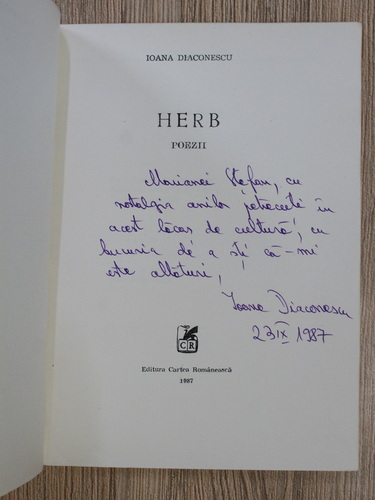 IOANA DIACONESCU
HERB
POEZII
Marianei Ștefan, cu
nostalgia anilor petrecuți în
acest lăcaș de cultură, cu
bucuria de a ști că-mi
este alături,
Ioana Diaconescu
23 IX 1987
CR
Editura Cartea Românească
1987